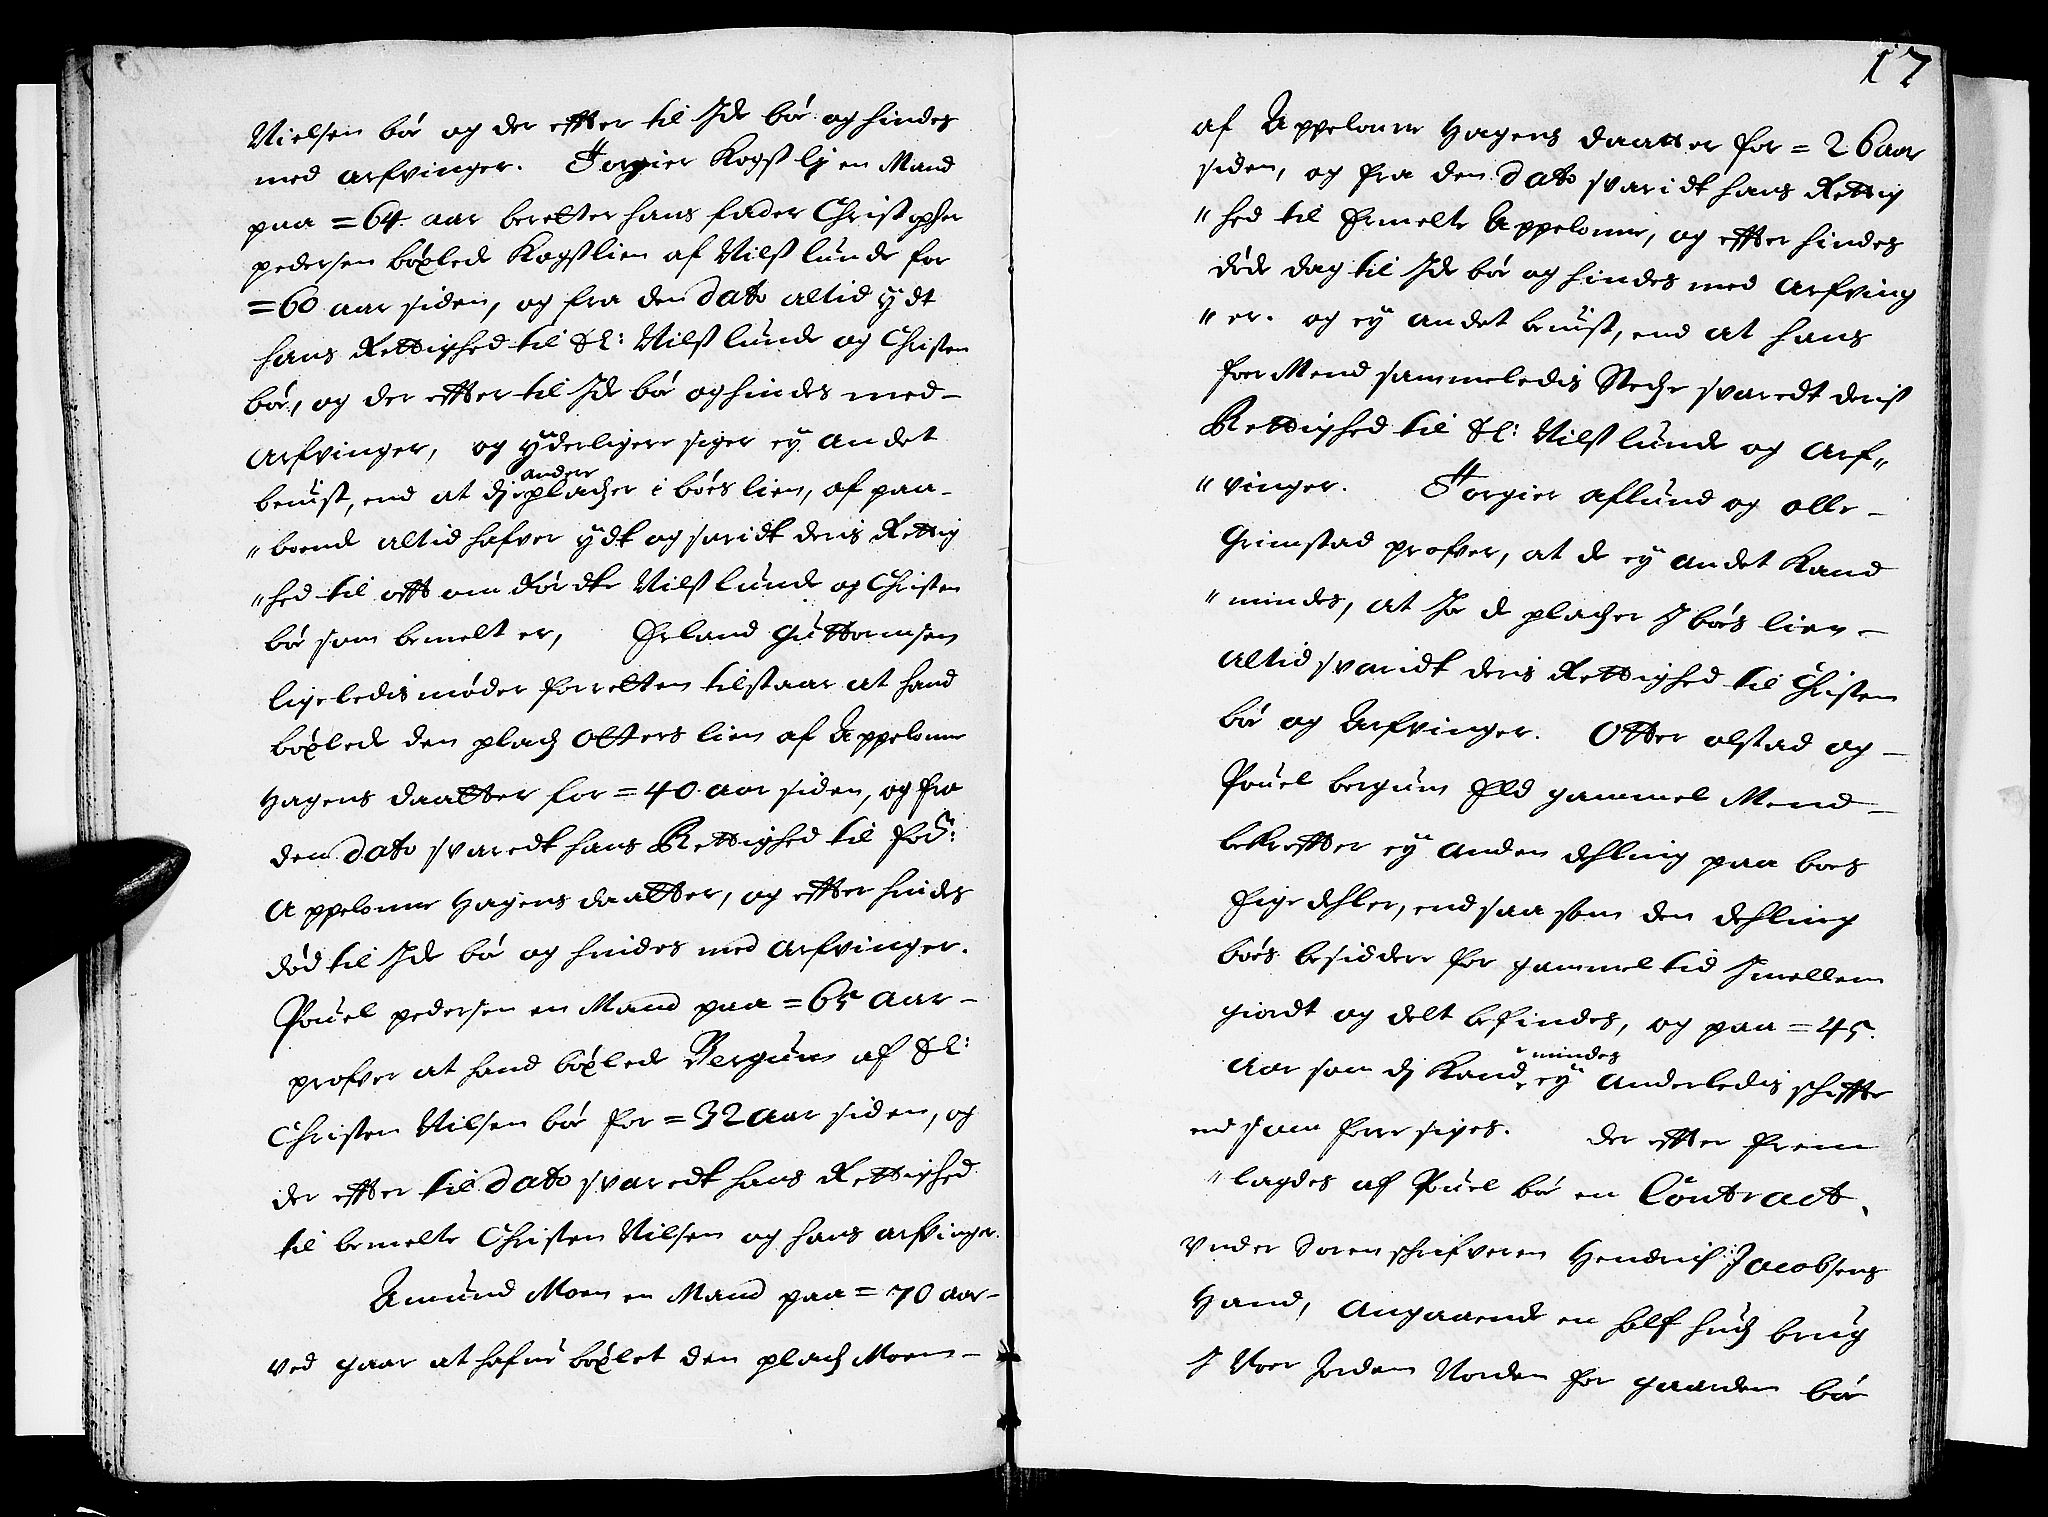 Nielsen bør og der effter til Ide bør og hindes
med arfvinger. Torgier Kogslj en Mand
paa =64 aar beretter hans fader Christopher
pedersen bøxlede Kogslien af Nilss lunde for
=60 aar siden, og fra den dato altid ydt
hans Rettighed til Sl: Nilss lunde og Christen
bør, og der effter til Ide bør og hindes med-
arfvinger, og yderligere siger ey andet
beuist, end at dj andre pladzer i børs lien, af paa-
"boende altid hafver ydt og svaridt deris Rettig
"hed til offt om rørdte Nilss lunde og Christen
bør som bemelt er, Erland Guttormsen
ligeledis møder for retten tilstaar at hand
bøxlede den pladz Otters lien af Appelone
Hagens daatter for =40 aar siden, og fra
den dato svaredt hans Rettighed til for:
Appelone Hagens daatter, og effter hindes
død til Ide bør og hindes med arfvinger.
Pouel pedersen en Mand paa =65 aar-
profver at hand bøxlede Bergum af Sl:
Christen Nilsen bør for =32 aar siden, og
der effter til dato svaredt hans Rettighed
til bemelte Christen Nilsen og hans arfvinger.
Amund Moen en Mand paa =70 aar-
ved gaar at hafue bøxlet den pladz Moen-
17
af Appelone Hagens daatter for =26 aar
siden, og fra den dato svaridt hans Rettig
"hed til Ermelte Appelone, og effter hindes
døde dag til Ide bør og hindes med arfving
"er. og ey andet beuist, end at hans
for Mend sammeledis Stedze svaredt deris
Rettighed til Sl: Nilss lunde og Arf"
"vinger. Torgier aslund og olle-
Grimstad profver, at de ey andet Kand
"mindes, at Jo de pladzer J børs lien-
altid svaridt deris Rettighed til Christen
bør og Arfvinger. Otter olstad og-
Pouel bergum Eld gammel Mend-
bekreffter ey anden dehling paa boes
Eigedehler, end saa som den dehling
børs besiddere for gammel tid Jmellem
giordt og delt befindes, og paa =45.
Aar som dj Kand mindes ey anderledis schiffte
end som forre siges. der effter frem
"lagdes af Pouel bør en Contract,
Vnder Sorenschrifveren Hendrich Jacobsens
Hand, angaaende en half hudz brug
J Noer Jorden Norden for gaarden bør